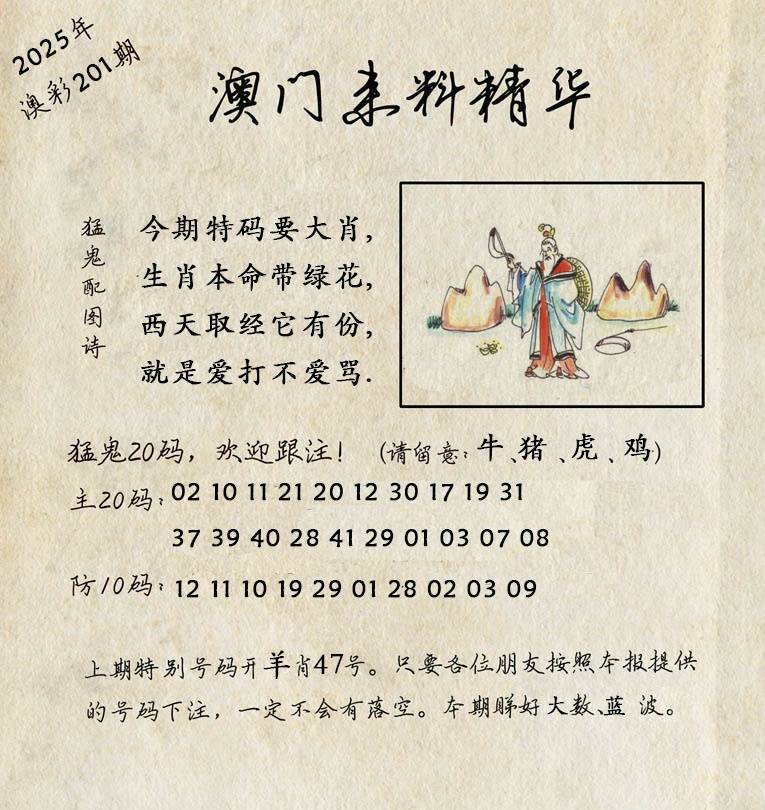 2025年
澳彩201期
澳门来料精华
猛鬼配图诗
今期特码要大肖,
生肖本命带绿花,
西天取经它有份,
就是爱打不爱骂.
猛鬼20码，欢迎跟注！（请留意：牛、猪、虎、鸡）
主20码：02 10 11 21 20 12 30 17 19 31
37 39 40 28 41 29 01 03 07 08
防10码：12 11 10 19 29 01 28 02 03 09
上期特别号码开羊肖47号。只要各位朋友按照本报提供
的号码下注，一定不会有落空。本期睇好大数、蓝 波。